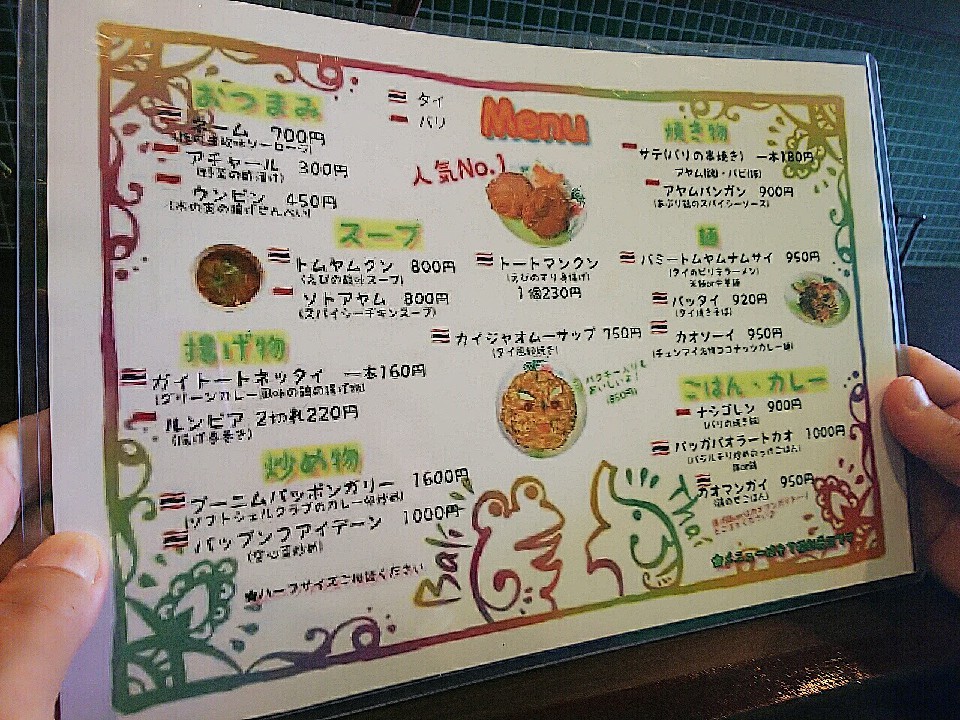 おつまみ
ネーム 700円
アチャール 300円
(野菜の酢漬け)
ウンピン 450円
(木の実の揚げせんべい)
タイ
バリ
Menu
人気No.1
スープ
トムヤムクン 800円
(えびの酸味スープ)
ソトアヤム 800円
(スパイシーチキンスープ)
トートマンクン
(えびのすり身揚げ)
1個230円
カイジャオムーサップ 750円
(タイ風卵焼き)
パクチー入りも
おいしいよ!
(850円)
揚げ物
ガイトートネッタイ 一本160円
(グリーンカレー風味の鶏の揚げ物)
ルンピア 2切れ220円
(揚げ春巻き)
炒め物
プーニムパッポンガリー 1600円
(ソフトシェルクラブのカレー卵炒め)
パップンファイデーン 1000円
(空心菜炒め)
★ハーフサイズご相談ください
Bali
Thai
焼き物
サテ(バリの串焼き) 一本180円
アヤム(鶏)・バビ(豚)
アヤムパンガン 900円
(あぶり鶏のスパイシーソース)
麺
バミートムヤムナムサイ 950円
(タイのピリ辛ラーメン)
米麺or中華麺
パッタイ 920円
(タイ焼きそば)
カオソーイ 950円
(チェンマイ名物ココナッツカレー麺)
ごはん・カレー
ナシゴレン 900円
(バリの焼き飯)
パッガパオラートカオ 1000円
(バジルチリ炒めのっけごはん)
豚or鶏
カオマンガイ 950円
(鶏のせごはん)